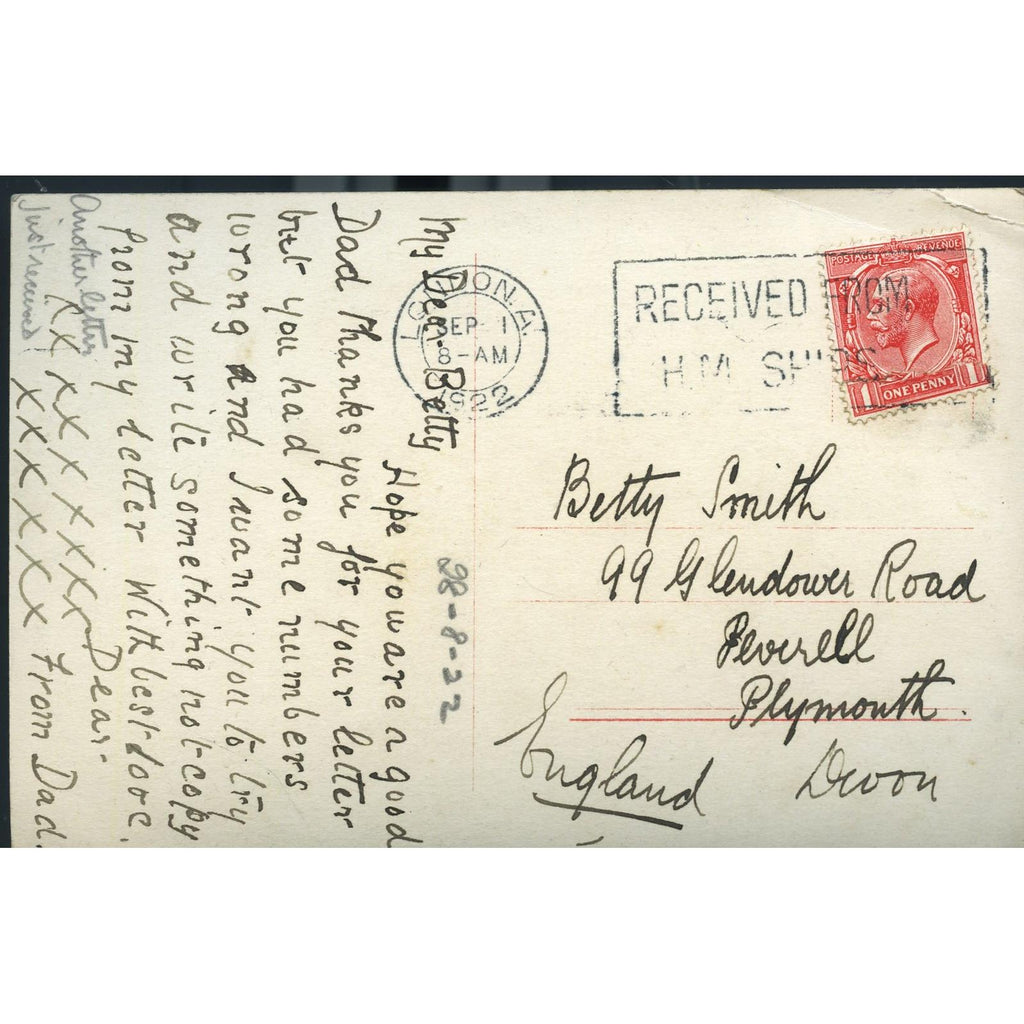 My Dear Betty
Hope you are a good
Dad thanks you for your letter
but you had some numbers
wrong and I want you to try
and write something not copy
from my letter With best love.
XX XX X X X XX Dear
X X X X X X X From Dad.
Another letter
just received
28-8-22
LONDON. A.
SEP 1
8-AM
1922
RECEIVED FROM
H.M. SHIPS.
POSTAGE REVENUE
1 ONE PENNY 1
Betty Smith
99 Glendower Road
Peverell
Plymouth.
Devon
England